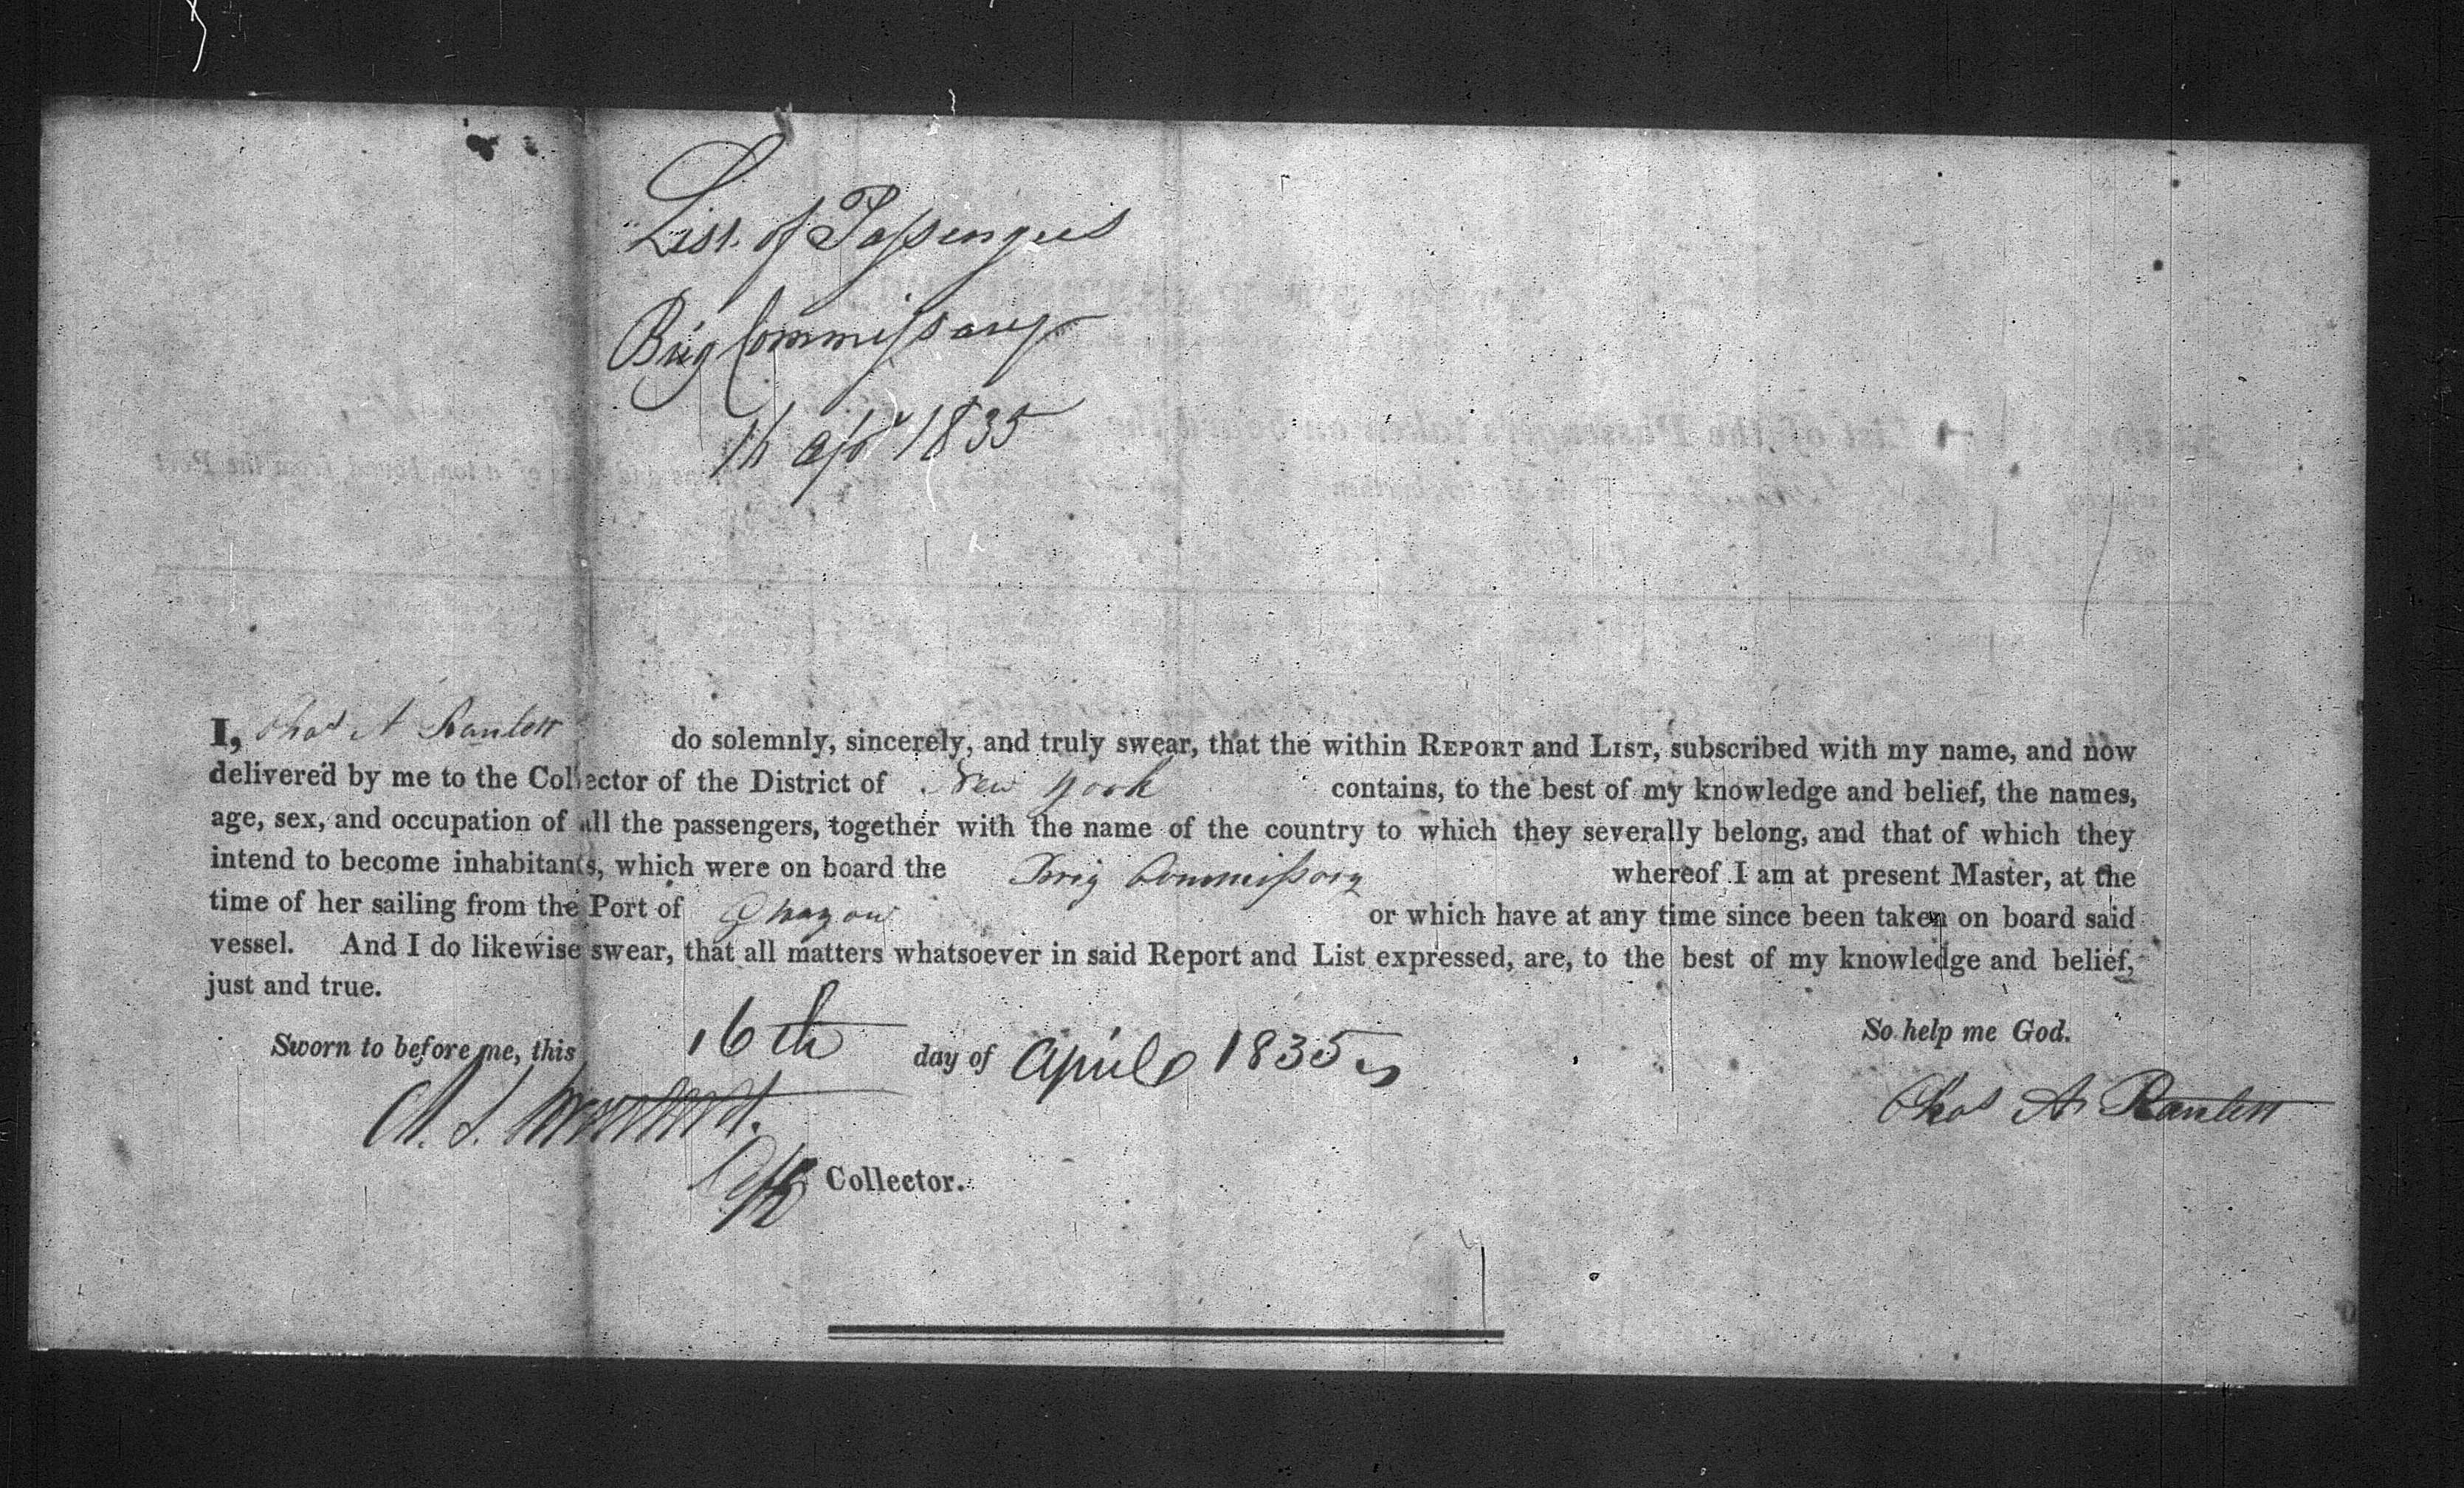 List of Passengers
Brig Commissary
16 Apr 1835
I, Chas A Ranlett do solemnly, sincerely, and truly swear, that the within REPORT and LIST, subscribed with my name, and now
delivered by me to the Collector of the District of New York contains, to the best of my knowledge and belief, the names,
age, sex, and occupation of all the passengers, together with the name of the country to which they severally belong, and that of which they
intend to become inhabitants, which were on board the Brig Commissary whereof I am at present Master, at the
time of her sailing from the Port of or which have at any time since been taken on board said
vessel. And I do likewise swear, that all matters whatsoever in said Report and List expressed, are, to the best of my knowledge and belief,
just and true.
So help me God.
Sworn to before me, this 16th day of April 1835
Chas A Ranlett
Collector.